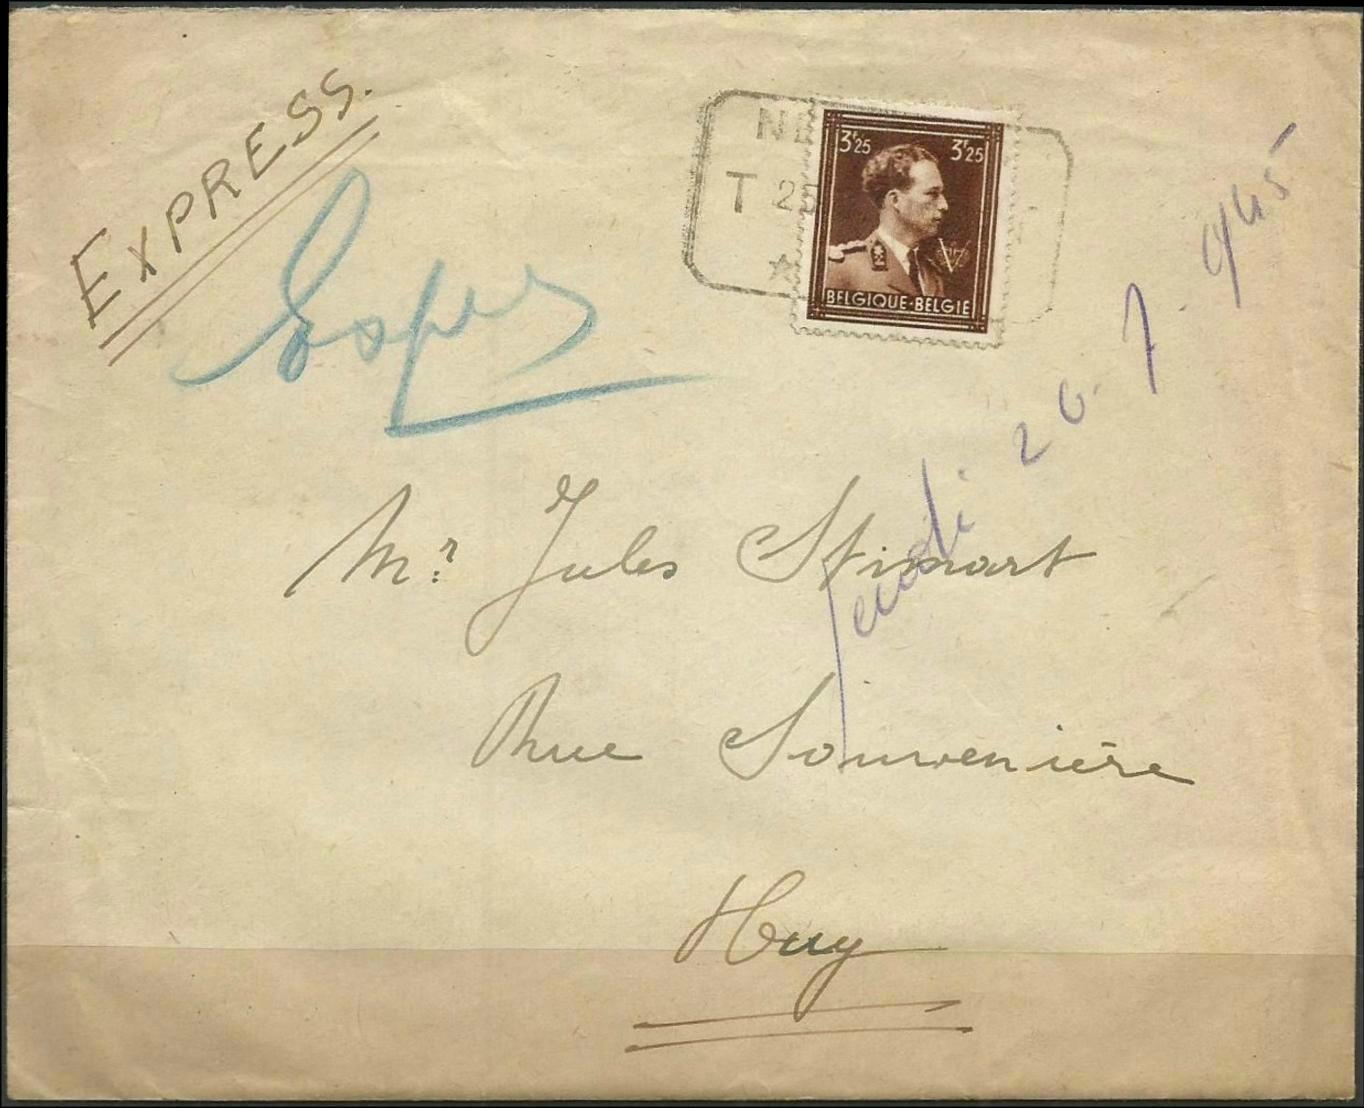 EXPRESS.
NE
T 25
3F25 3F25
BELGIQUE·BELGIE
Jeudi 26.7.945
Mr. Jules Stimart
Rue Souvenière
Huy